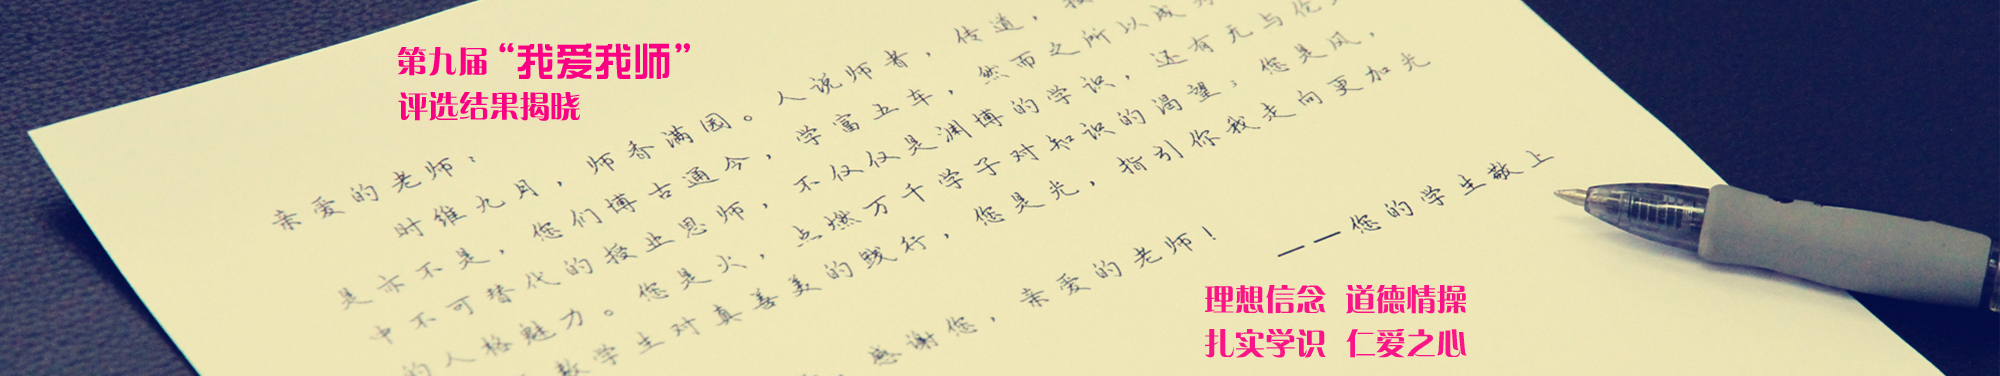 第九届“我爱我师”
评选结果揭晓
亲爱的老师：
时维九月，师香满园。人说师者，传道，
是亦不是，您们博古通今，学富五车，然而之所以成
中不可替代的授业恩师，不仅仅是渊博的学识，还有无与伦
的人格魅力。您是火，点燃万千学子对知识的渴望；您是风，
数学生对真善美的践行，您是光，指引你我走向更加光
感谢您，亲爱的老师！
——您的学生敬上
理想信念 道德情操
扎实学识 仁爱之心